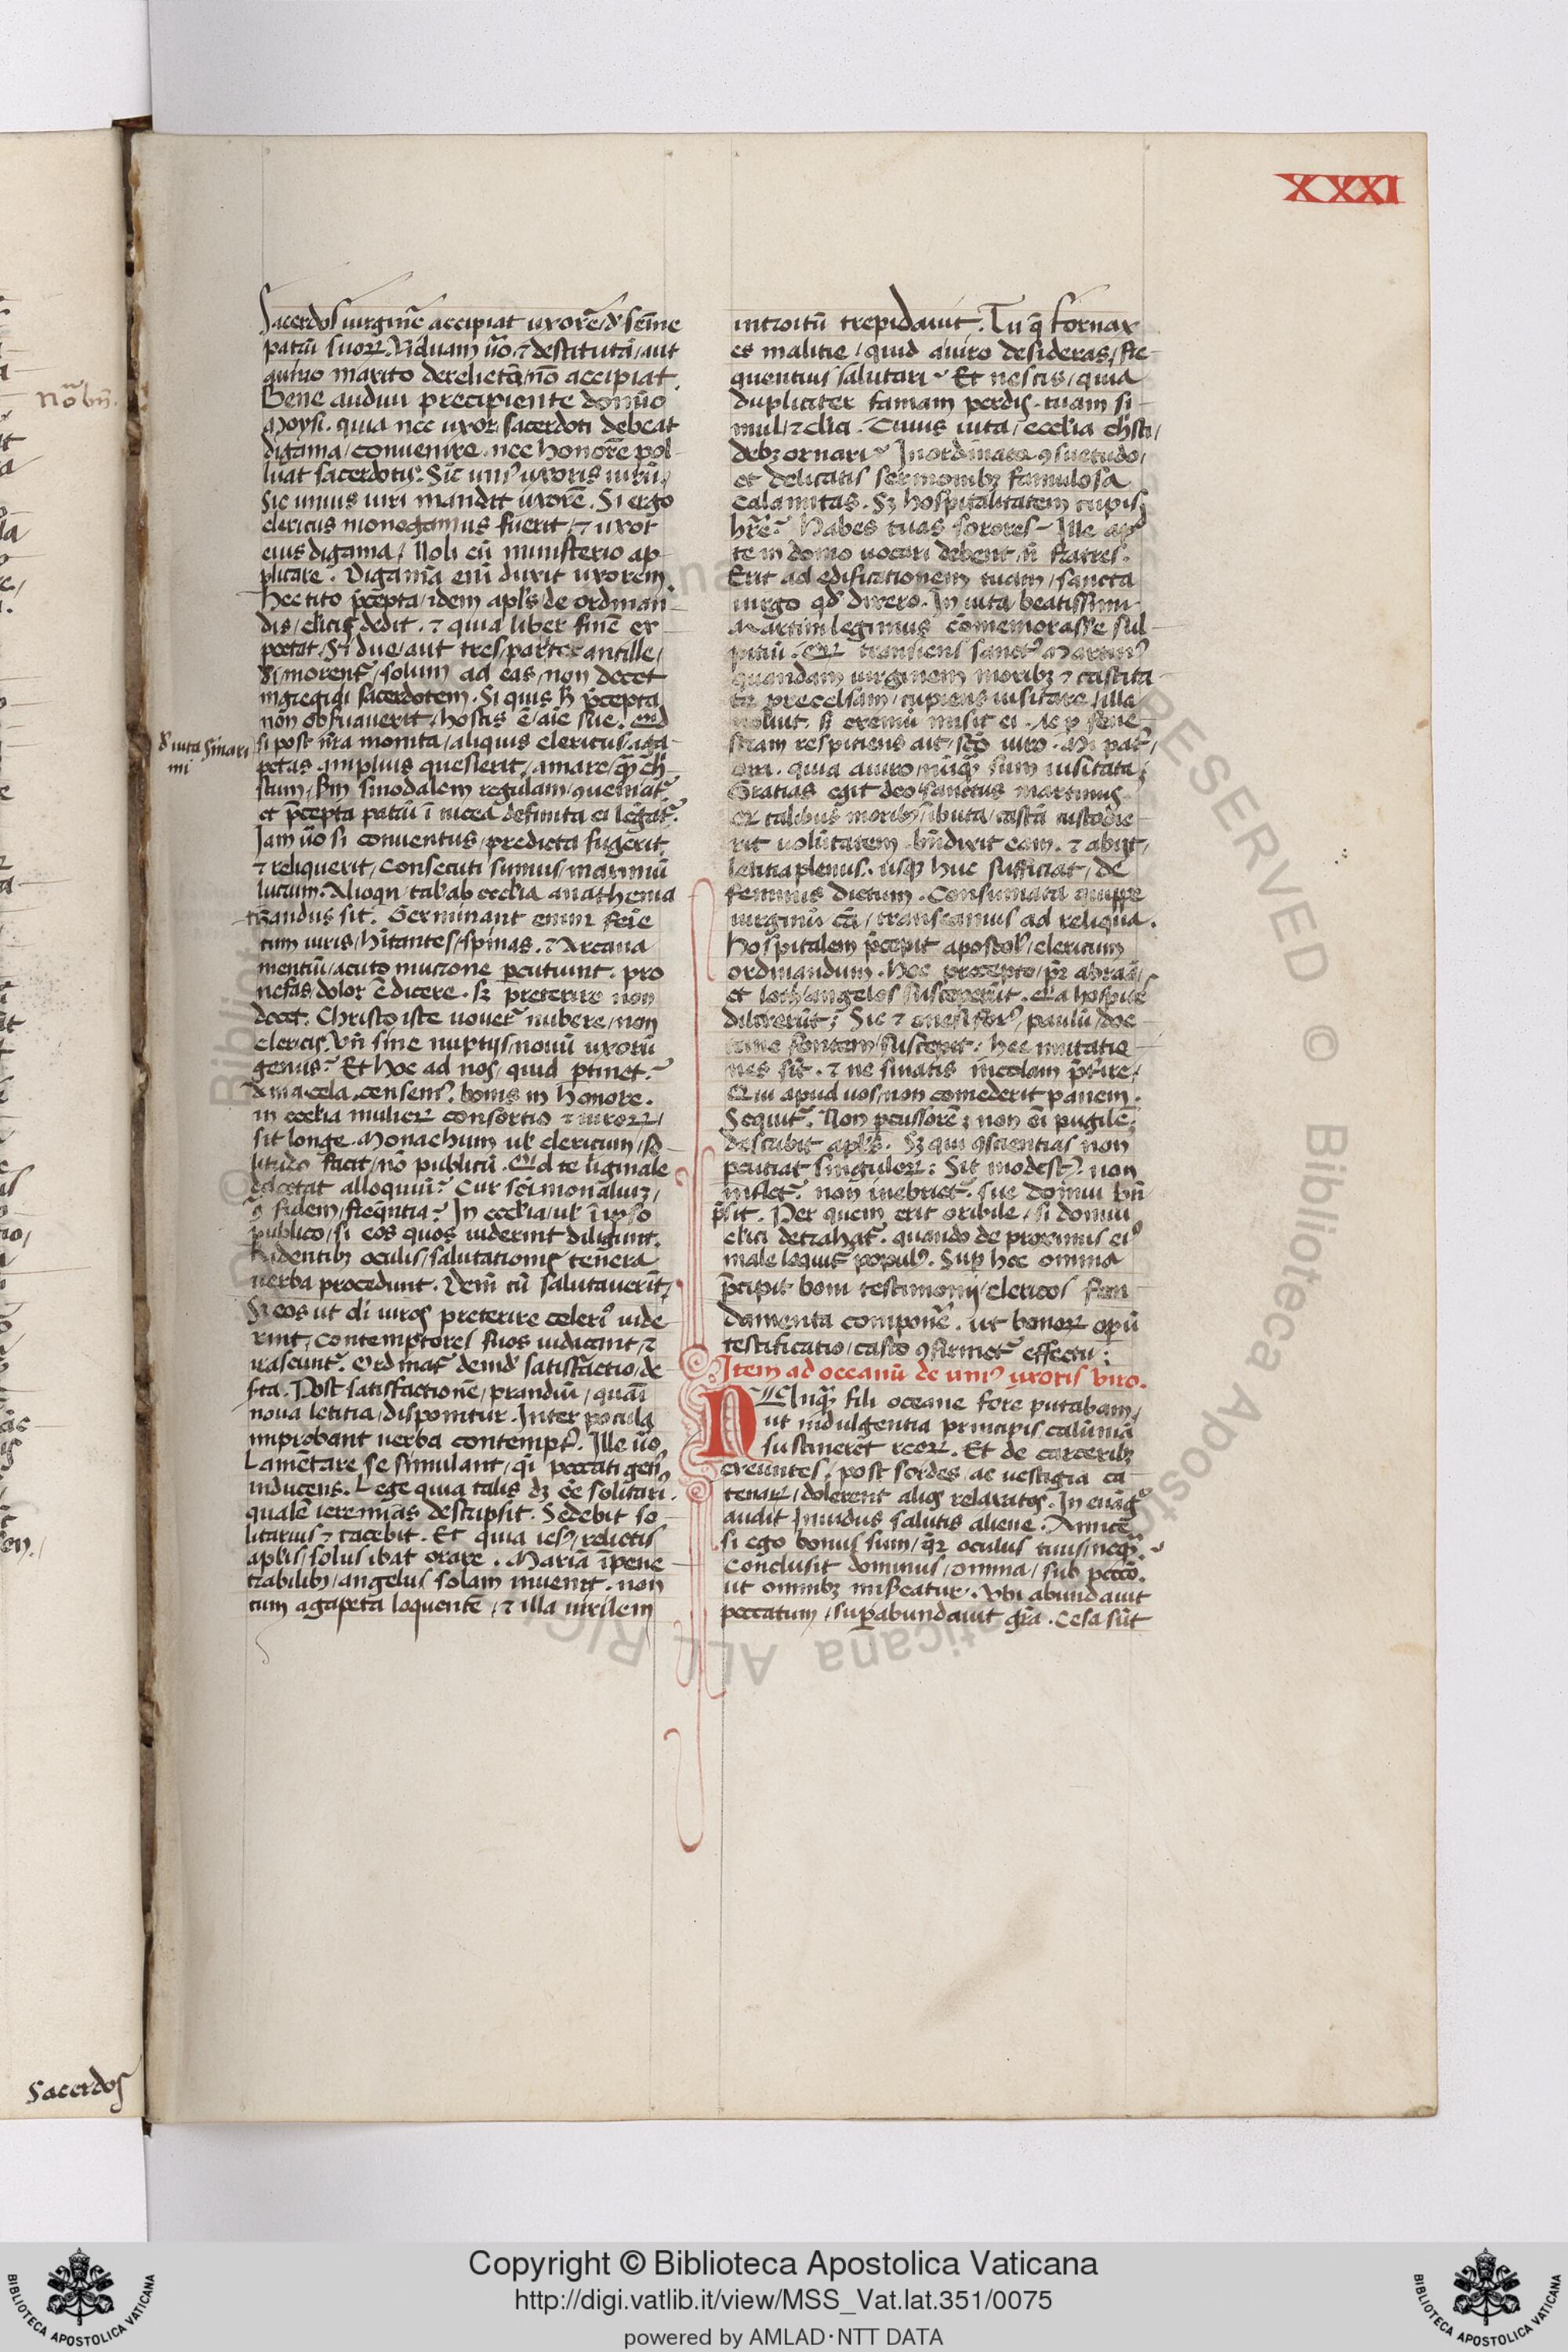 XXXI
Sacerdos uirginē accipiat uxorē / d' semīe
patrū suoꝝ. Viduam ūo ⁊ destitutā / aut
a uiuo marito derelictā / nō accipiat.
Bene audiui precipiente domīo
Moysi. quia nec uxor / sacerdoti debeat
digama / conuenire. nec honorē pol
luat sacerdotis. Sic uni⁹ uxoris uirū /
Sic unius uiri mandat uxorē. Si ergo
clericus monogamus fuerit / ⁊ uxor
eius digama / Noli eū ministerio ap
plicare. Digamā enī duxit uxorem.
Hec tito p̄cepta / idem apl's / de ordinan
dis / clicis dedit. ⁊ quia liber finē ex
pectat / Si due / aut tres / pariter ancille /
simorent᷑ / solum ad eas / non decet
ingredi sacerdotem. Si quis h̄ p̄cepta
non obseruauerit / hostis ē / aīe sue.
d' uita Sinari
mi
si post nr̄a monita / aliquis clericus / aga
petas amplius quesierit / amare / q̄ ch̄
stum / Scd'm sinodalem regulam / ꝯueniat᷑
et p̄cepta patrū ī nicea definita ei legāt᷑.
Iam ūo si conuentus / predicta fugerit
⁊ reliquerit / Consecuti sumus / maximū
lucrum. Alioqn / talis ab eccl'ia anathema
tizandus sit. Germinant enim feīe
cum uiris / hītantes / spinas. ⁊ Arcana
mentiū / acuto mucrone percutiunt. pro
nefas / dolor ē dicere. sꝫ preterire non
decet. Christo iste uouent᷑ nubere / non
clericis. Vn̄ sine nuptijs / nouū uxorū
genus? Et hoc ad nos / quid ptinet?
in eccl'ia mulieꝝ consortio
sit longe. Monachum ul' clericum / so
litudo facit / nō publicū. Quid te uirginale
delectat alloquiū? Cur sc̄imonialiū /
In eccl'ia / ul' ī ipso
publico / si eos quos uiderint diligunt.
Ridentibꝫ oculis / salutationis tenera
uerba procedunt. Dem̄ cū salutauerīt /
Si eos ut di uiros preterire celeri⁹ uide
rint / Contemptores suos iudicant / ⁊
irascunt᷑. Ordinat᷑ deinde satisfactio / de
fca. Post satisfactionē / prandiū / quasi
noua letitia / disponitur. Inter pocula
improbant uerba contempt⁹. Ille ūo
Lamētare se simulant / qi peccati geti⁹
inducens. Lege quia talis dꝫ ēe solitari⁹.
qualē ieremias descripsit. Sedebit so
litarius ⁊ tacebit. Et quia ies⁹ / relictis
apl'is / solus ibat orare. Mariā īpene
trabilibꝫ / angelus solam inuenit. non
cum agapeta loquentē / ⁊ illa uirilem
introitū trepidauit. Tu q̄ fornax
es malitie / quid a uiro desideras / fre
quentius salutari? Et nescis / quia
dupliciter famam perdis. tuam si
mul / ⁊ clici. Cuius uita / eccl'ia chr̄sti /
debꝫ ornari? Inordinata ꝯsuetudo /
et delicatis sermonibꝫ famulosa
calamitas. Sꝫ hospitalitatem cupis
hr̄e? Habes tuas sorores. Ille ap
te in domo uocari debent / n̄ fratres.
Erit ad edificationem tuam / sancta
uirgo qd' dixero. In uita beatissimi
Martini legimus cōmemorasse sul
pitiū. Qꝛ transiens sanct⁹ Martin⁹
quandam uirginem moribꝫ ⁊ castita
te precelsam / cupiens uisitare / illa
noluit. sꝫ exeniū misit ei. Ac p fene
stram respiciens ait / scō uiro. Mi pat᷑ /
ora. quia a uiro / nūqꝫ sum uisitata.
Gratias egit deo / sanctus martinus
qꝛ talibus moribꝫ / ībuta / castā custodie
rit uolūtatem. bn̄dixit eam. ⁊ abijt /
letitia plenus. usqꝫ huc sufficiat / de
feminis dictum. Consumata quippe
uirginū cā / transeamus ad reliqua.
Hospitalem p̄cepit apostol⁹ / clericum
ordinandum. Hec precepto / pr̄ abraā /
et loth / angelos susceperūt.
dilexerūt. Sic ⁊ onesifor⁹ / paulū / doc
trine fontem / suscepit. hec imitatio
nes sit. ⁊ ne sinatis nicolam p̄tire /
Qui apud uos / non comederit panem.
Sequit᷑. Non pcussorē; non eī pugilē;
describit apl's. Sꝫ qui ꝯscientias non
peutiat singuloꝝ. Sit modest⁹. non
inflet᷑. non inebriet᷑. sue domui bn̄
p̄sit. Per quem erit oribile / si domui
clici detrahat᷑. quando de proximis ei⁹
male loquit᷑ popul⁹. Sup hec omnia
p̄cipit boni testimonij / clericos fun
damenta componē. ut bonoꝝ opū
testificatio / casto ꝯfirmet᷑ effectu:
Item ad occeanū de uni⁹ uxoris Viro.
NUnqꝫ fili oceane fore putabam /
ut indulgentia principis calūniā
sustineret reoꝝ. Et de carceribꝫ
exeuntes / post sordes ac uestigia ca
tenaꝝ / dolerent alios relaxatos. In euāg⁰
audit Inuidus salutis aliene. Amice
si ego bonus sum / qr̄ oculus tuus / neqꝫ.
Conclusit dominus / omnia / sub peccō.
ut omnibꝫ misereatur. Vbi abundauit
peccatum / superabundauit grā. Cesa sūt
Sacerdos
Copyright © Biblioteca Apostolica Vaticana
http://digi.vatlib.it/view/MSS_Vat.lat.351/0075
powered by AMLAD·NTT DATA
BIBLIOTECA APOSTOLICA VATICANA
BIBLIOTECA APOSTOLICA VATICANA